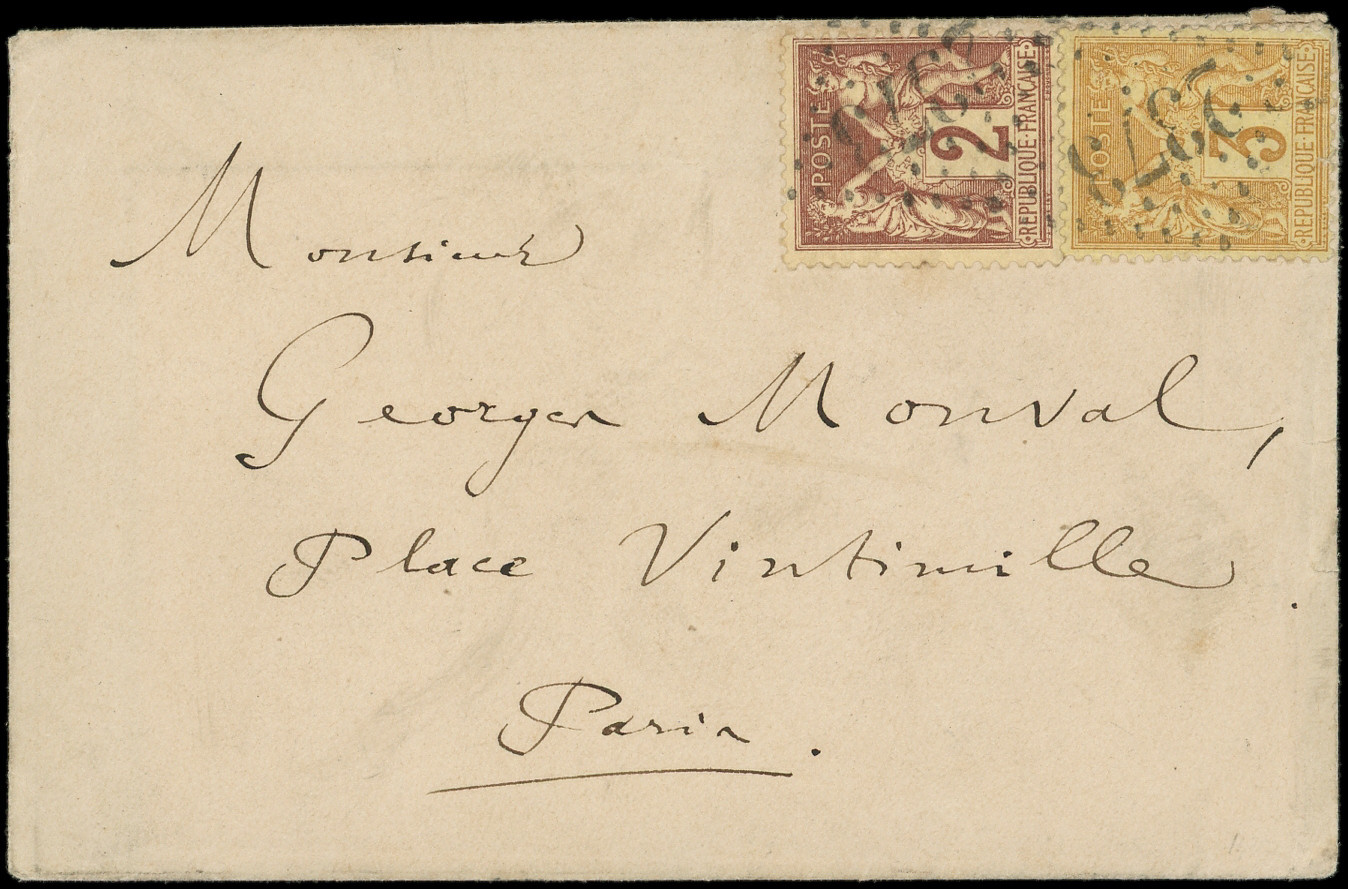 POSTE
2
REPUBLIQUE·FRANÇAISE
POSTE
3
REPUBLIQUE·FRANÇAISE
Monsieur
Georges Monval,
Place Vintimille.
Paris.